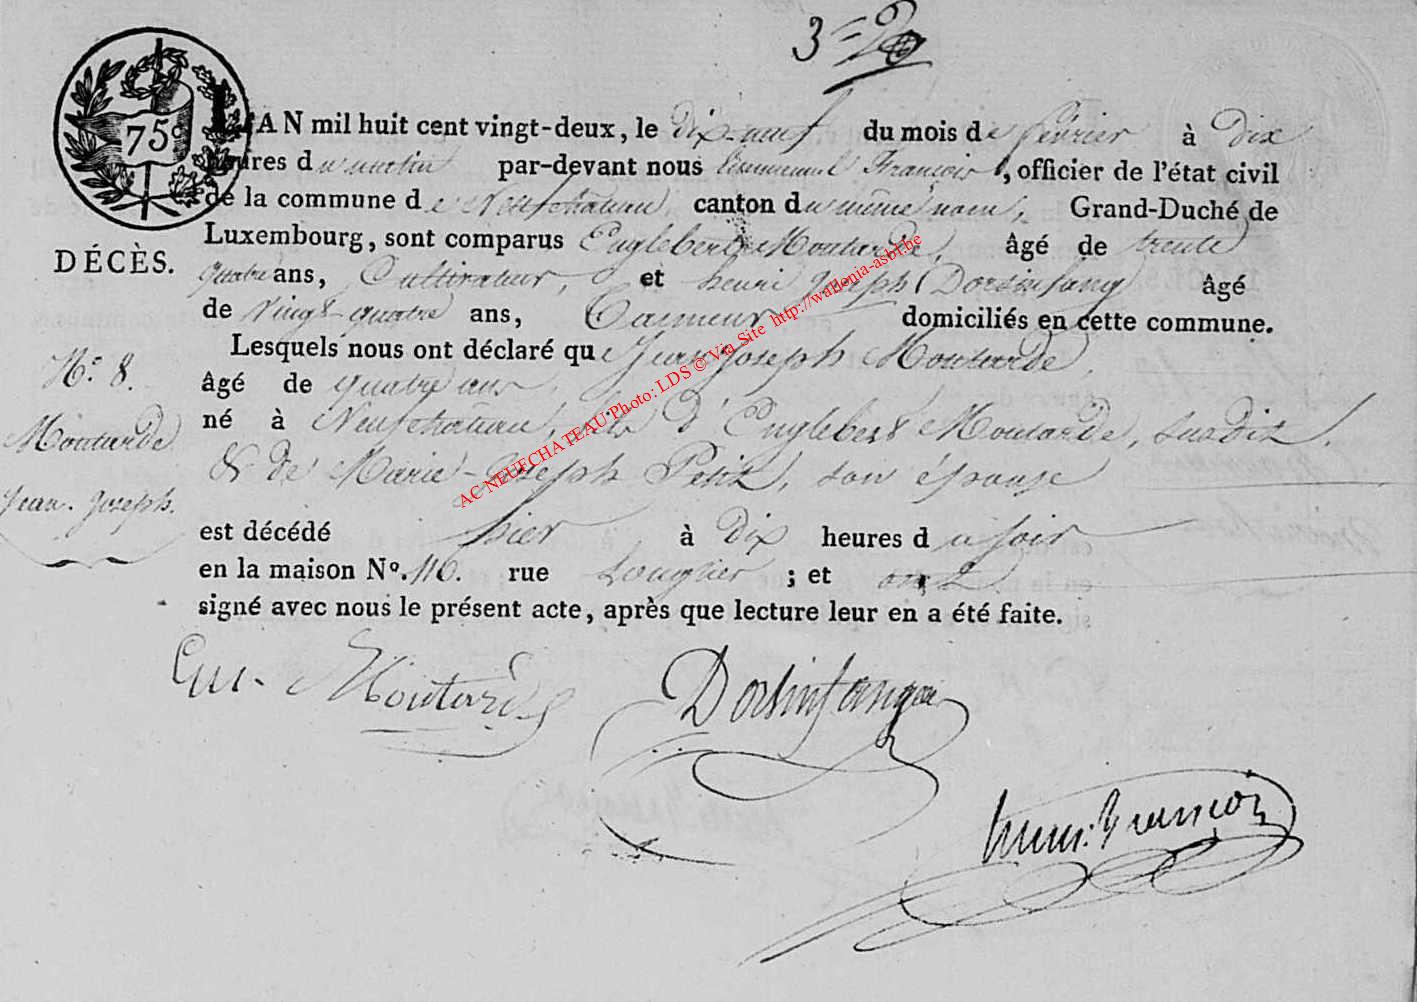 3 =
75 c
L'AN mil huit cent vingt-deux, le dix-neuf du mois de février à Dix
heures du matin par-devant nous Emmanuel François, officier de l'état civil
de la commune de Neufchâteau, canton du même nom, Grand-Duché de
Luxembourg, sont comparus Englebert Moutarde, âgé de trente
DÉCÈS.
quatre ans, Cultivateur, et henri joseph Dorsinfang âgé
de Vingt-quatre ans, domiciliés en cette commune.
Lesquels nous ont déclaré que Jean joseph Moutarde,
N.° 8.
âgé de quatre ans,
né à Neufchâteau, fils d'Englebert Moutarde, susdit,
Moutarde
& de Marie-Joseph Petit, son épouse
Jean-Joseph.
est décédé hier à Dix heures du soir
en la maison N°. 116. rue ; et ont
signé avec nous le présent acte, après que lecture leur en a été faite.
Moutarde
Dorsinfang
Emm. François
AC NEUFCHATEAU Photo: LDS © Via Site http://wallonia-asbl.be